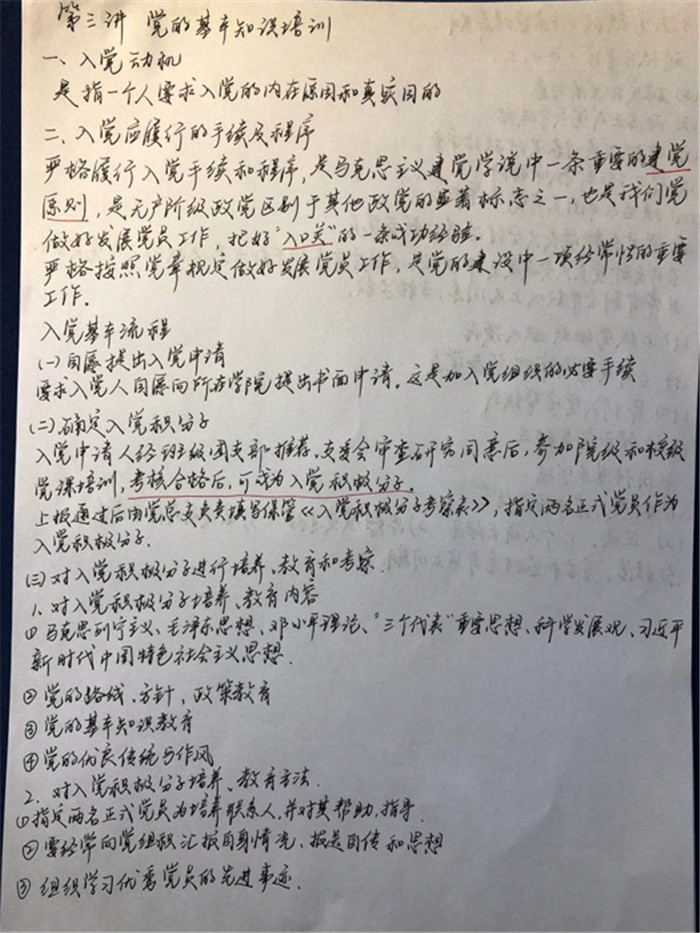 第三讲 党的基本知识培训
一、入党动机
是指一个人要求入党的内在原因和真实目的
二、入党应履行的手续及程序
严格履行入党手续和程序，是马克思主义建党学说中一条重要的建党
原则，是无产阶级政党区别于其他政党的显著标志之一，也是我们党
做好发展党员工作，把好“入口关”的一条成功经验。
严格按照党章规定做好发展党员工作，是党的建设中一项经常性的重要
工作.
入党基本流程
(一)自愿提出入党申请
要求入党人自愿向所在学院提出书面申请。这是加入党组织的必要手续
(二)确定入党积分子
入党申请人经班级团支部推荐、支委会审查研究同意后，参加院级和校级
党课培训，考核合格后，可成为入党积极分子.
上报通过后由党总支负责填写保管《入党积极分子考察表》，指定两名正式党员作为
入党积极分子.
(三)对入党积极分子进行培养、教育和考察.
1、对入党积极分子培养、教育内容
① 马克思列宁主义、毛泽东思想、邓小平理论、“三个代表”重要思想、科学发展观、习近平
新时代中国特色社会主义思想.
② 党的路线、方针，政策教育
③ 党的基本知识教育
④ 党的优良传统与作风
2、对入党积极分子培养、教育方法.
① 指定两名正式党员为培养联系人，并对其帮助，指导.
② 要经常向党组织汇报自身情况、报送自传和思想
③ 组织学习优秀党员的先进事迹.